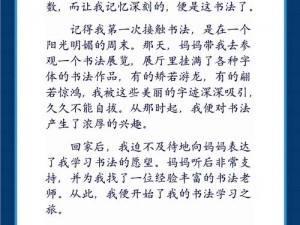 数，而让我记忆深刻的，便是这书法了。
记得我第一次接触书法，是在一个
阳光明媚的周末。那天，妈妈带我去参
观一个书法展览，展厅里挂满了各种字
体的书法作品，有的矫若游龙，有的翩
若惊鸿，我被这些美丽的字迹深深吸引，
久久不能自拔。从那时起，我便对书法
产生了浓厚的兴趣。
回家后，我迫不及待地向妈妈表达
了我学习书法的愿望。妈妈听后非常支
持，并为我找了一位经验丰富的书法老
师。从此，我便开始了我的书法学习之
旅。